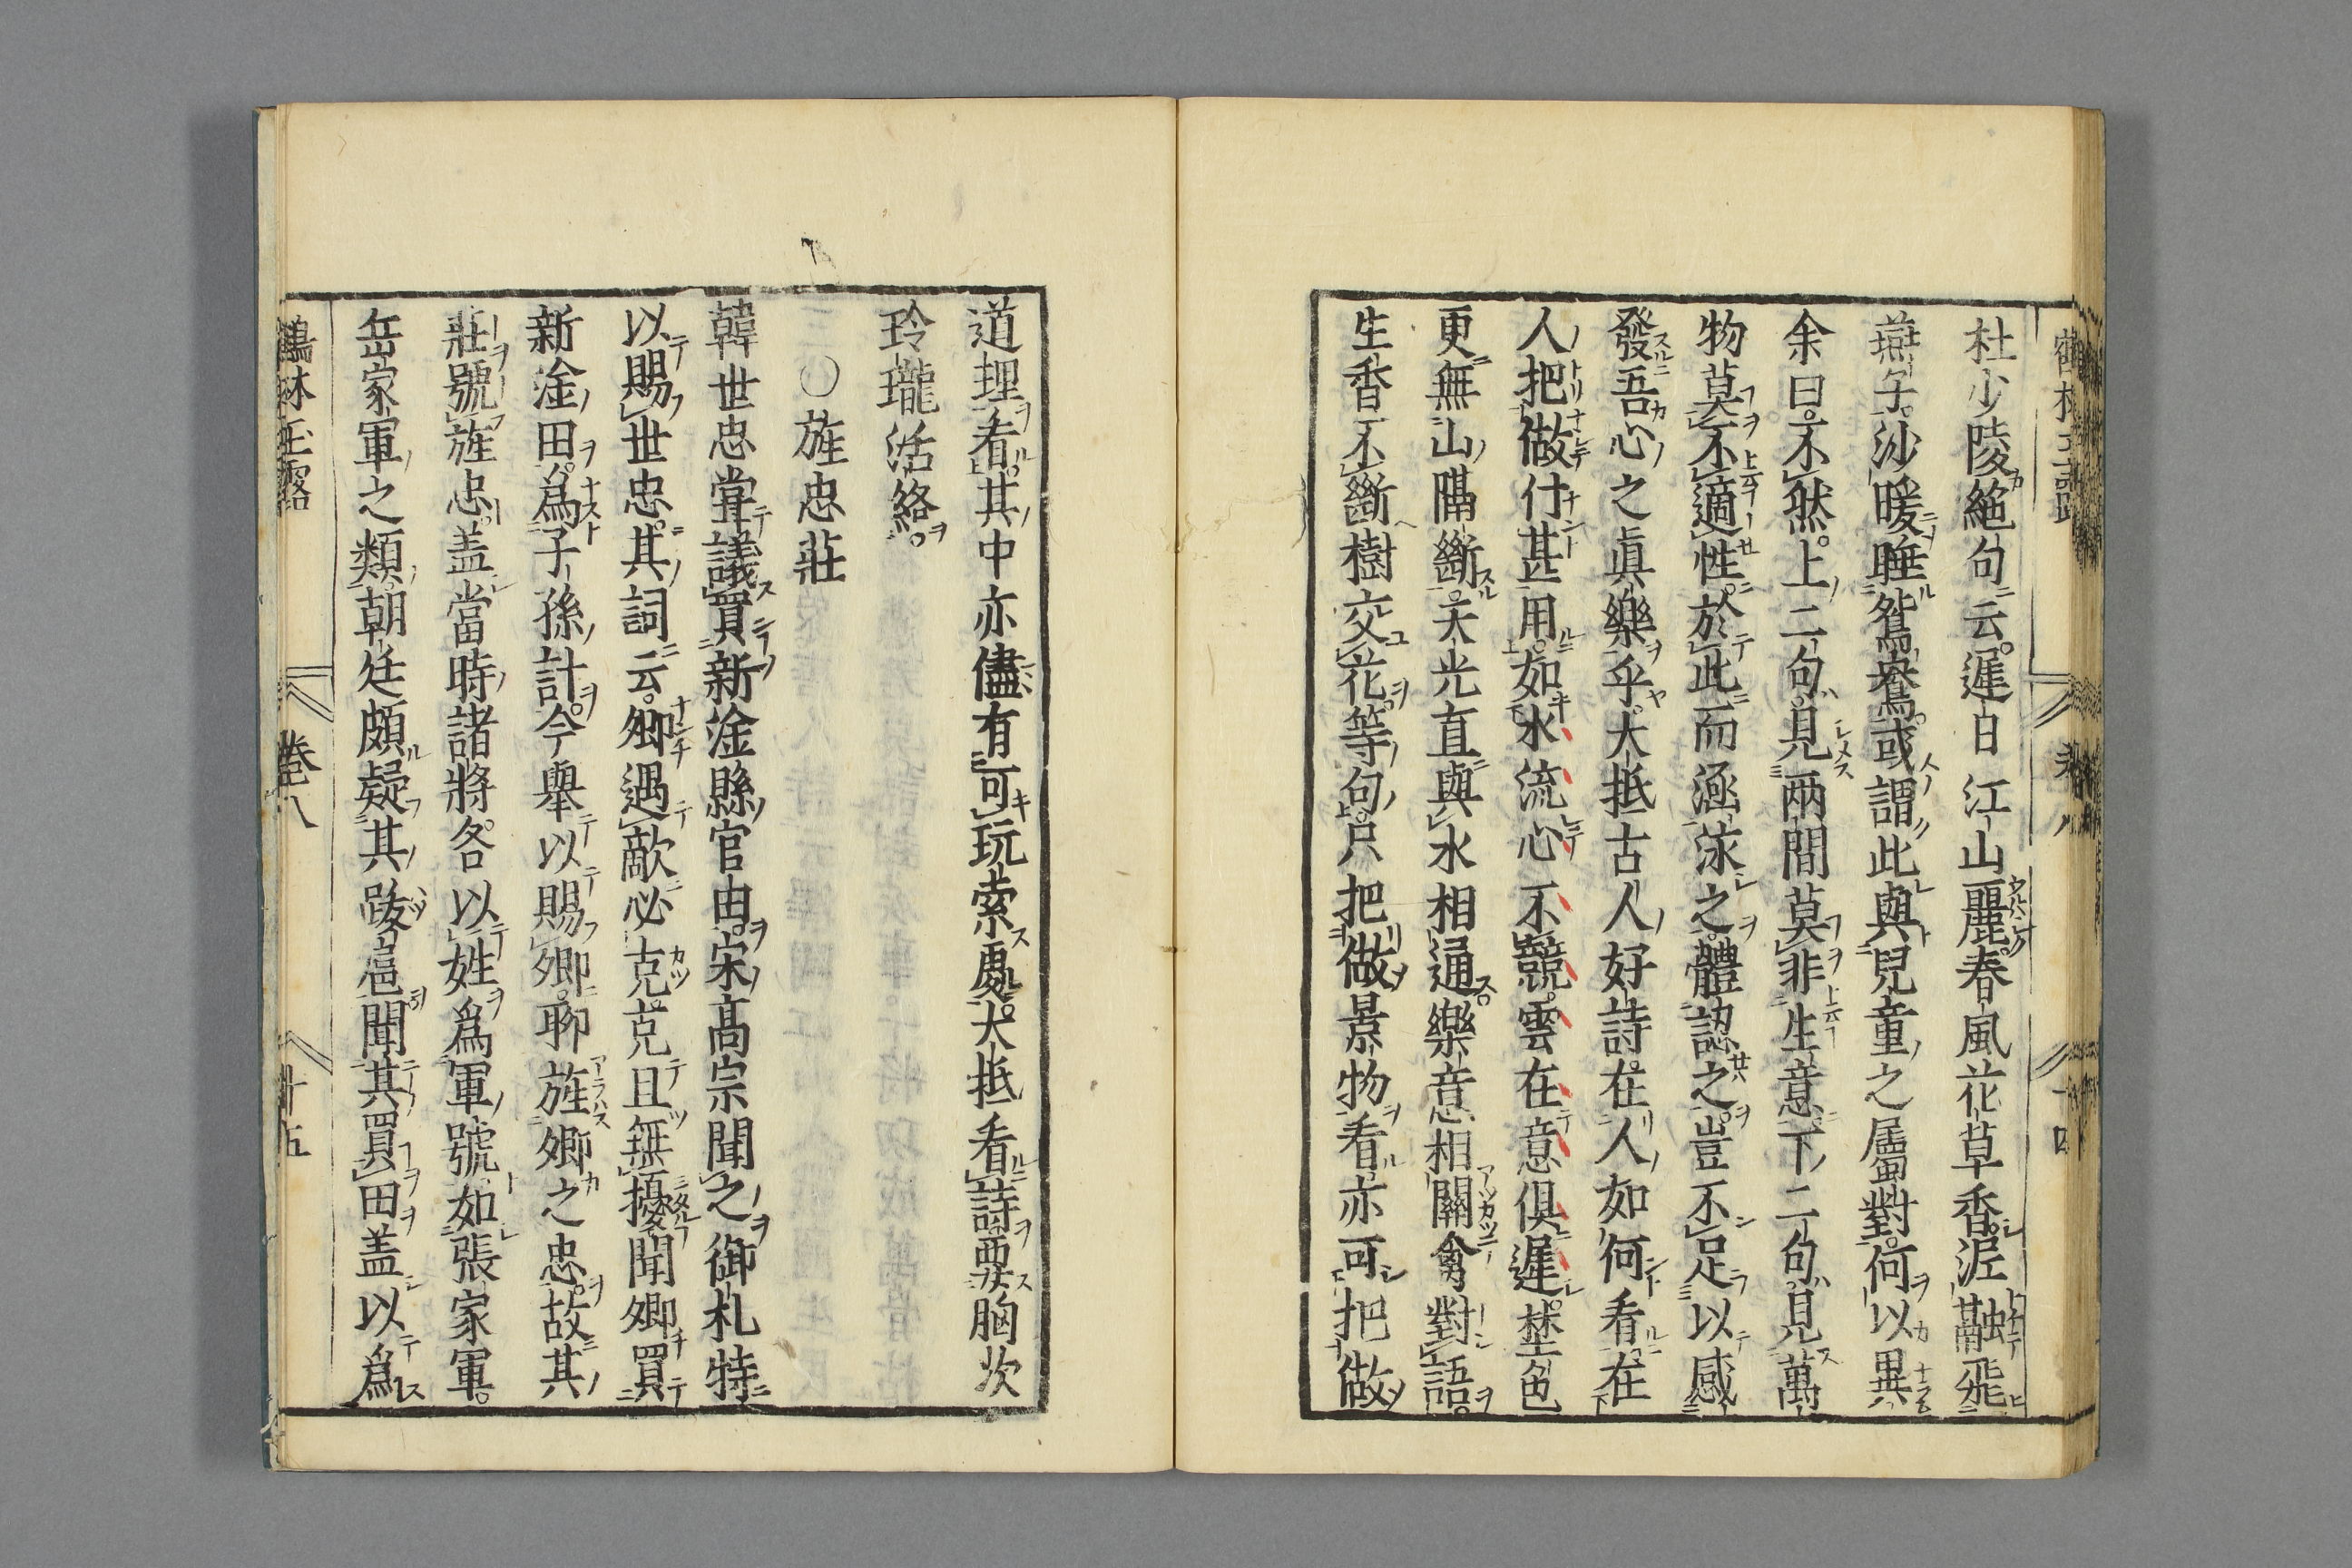 杜少陵絕句云。遲日江山麗。春風花草香。泥融飛
燕子。沙暖睡鴛鴦。或謂此與兒童之屬對何以異
余曰。不然。上二句。見兩間莫非生意。下二句。見萬
物莫不適性。於此而涵泳之。體認之。豈不足以感
發吾心之眞樂乎。大抵古人好詩。在人如何看在
人把做什甚用。如水流心不競。雲在意俱遲。埜色
更無山隔斷。天光直與水相通。樂意相關禽對語。
生香不斷樹交花等句。只把做景物看亦可把做
道理看。其中亦儘有可玩索處。大抵看詩要胸次
玲瓏活絡。
○旌忠莊
韓世忠甞議買新淦縣官田。宋高宗聞之御札特
以賜世忠。其詞云。卿遇敵必克。克且無擾聞卿買
新淦田。爲子孫計。今舉以賜卿。聊旌卿之忠。故其
莊號旌忠。盖當時諸將各以姓爲軍號。如張家軍。
岳家軍之類。朝廷頗疑其跋扈聞其買田盖以爲
鶴林玉露 卷八 十五